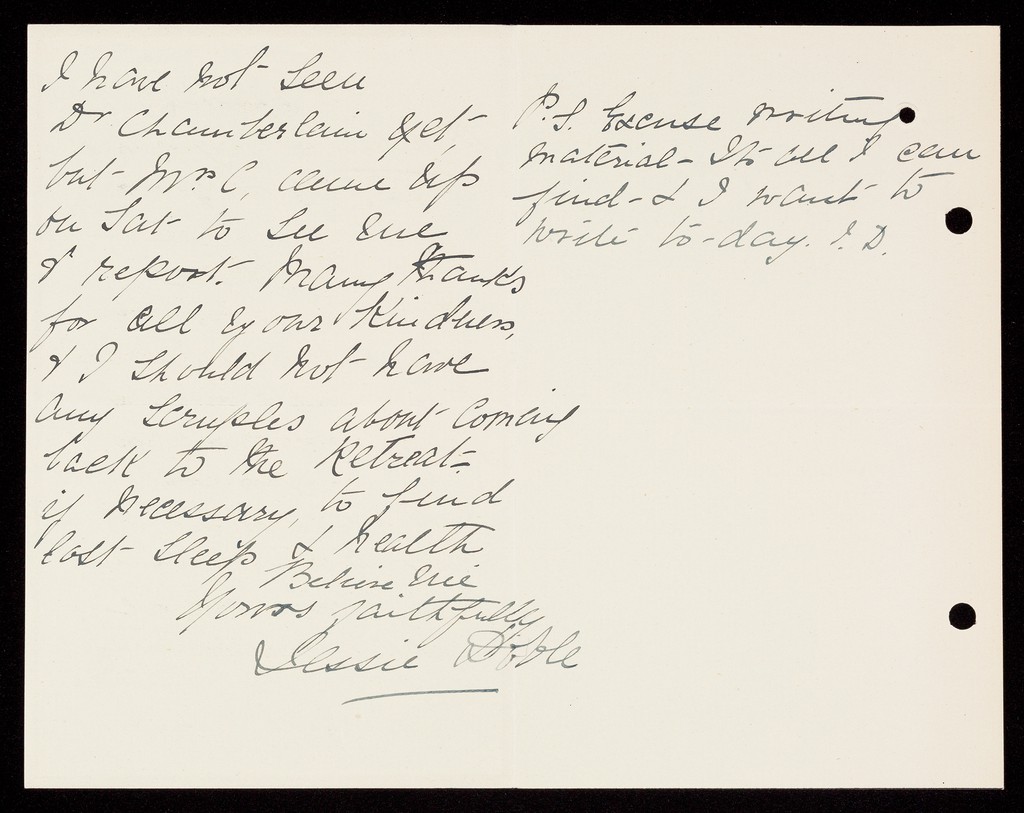 I have not seen
Dr Chamberlain yet,
but Mrs C, came up
on Sat to see me
& report. Many thanks
for all your kindness,
& I should not have
any scruples about coming
back to the Retreat-
if necessary, to find
lost sleep & health
Believe me
Yours faithfully
Jessie Doble
P.S. Excuse writing
material - Its all I can
find - & I want to
write to-day. J. D.